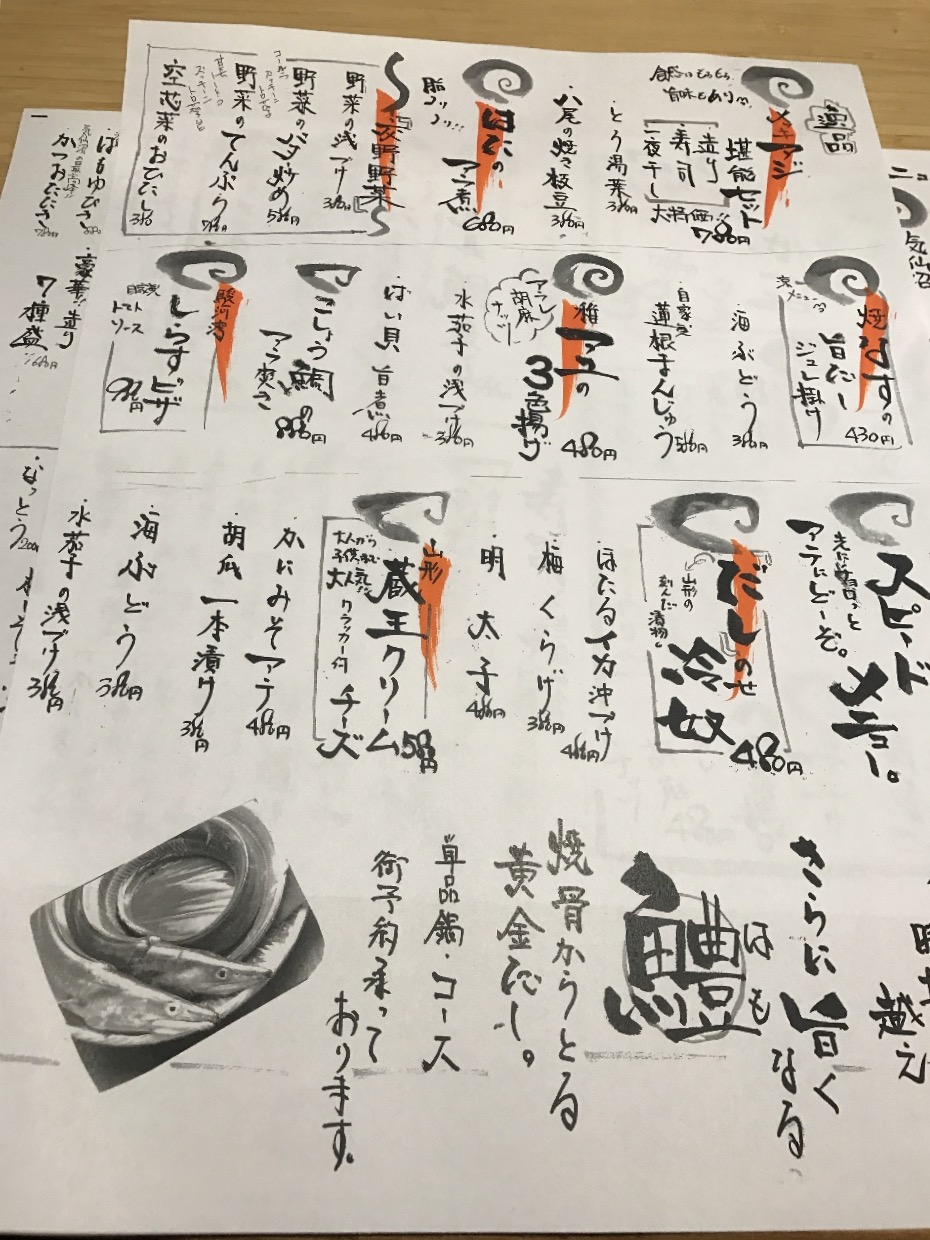 逸品
メキアジ
堪能セット
造り
寿司
一夜干し
780円
とう湯葉
380円
八尾の焼き枝豆
380円
はたの
アラ煮
680円
脂ノリノリ!!
野菜
野菜の浅づけ
380円
野菜のバタ炒め
580円
野菜のてんぷら
780円
空芯菜のおひたし
380
焼なすの
旨だし
ジュレ掛け
430円
海ぶどう
380円
自家製
蓮根まんじゅう
580円
稚アユの
3色揚げ
480円
アラレ
胡麻
ナッツ
水茄子の浅づけ
380円
ばい貝旨煮
480円
こしょう鯛の
アラ炊き
880円
駿河湾
しらすのピザ
980円
自家製
トマト
ソース
スピードメニュー。
アテにどーぞ。
だしのせ
冷奴
480円
山形の
刻んだ
漬物
ほたるイカ沖づけ
480円
梅くらげ
380円
明太子
480円
山形
蔵王クリーム
チーズ
580円
大人から
子供まで
大人気
クラッカー付
かにみそアテ
480円
胡瓜一本漬け
380円
海ぶどう
380円
水茄子の浅づけ
380円
さらに旨くなる
はも
鱧
焼骨からとる
黄金だし。
単品鍋・コース
御予約承って
おります。
気仙沼
はもゆびき
かつおたたき
豪華!!造り
7種盛
なっとう